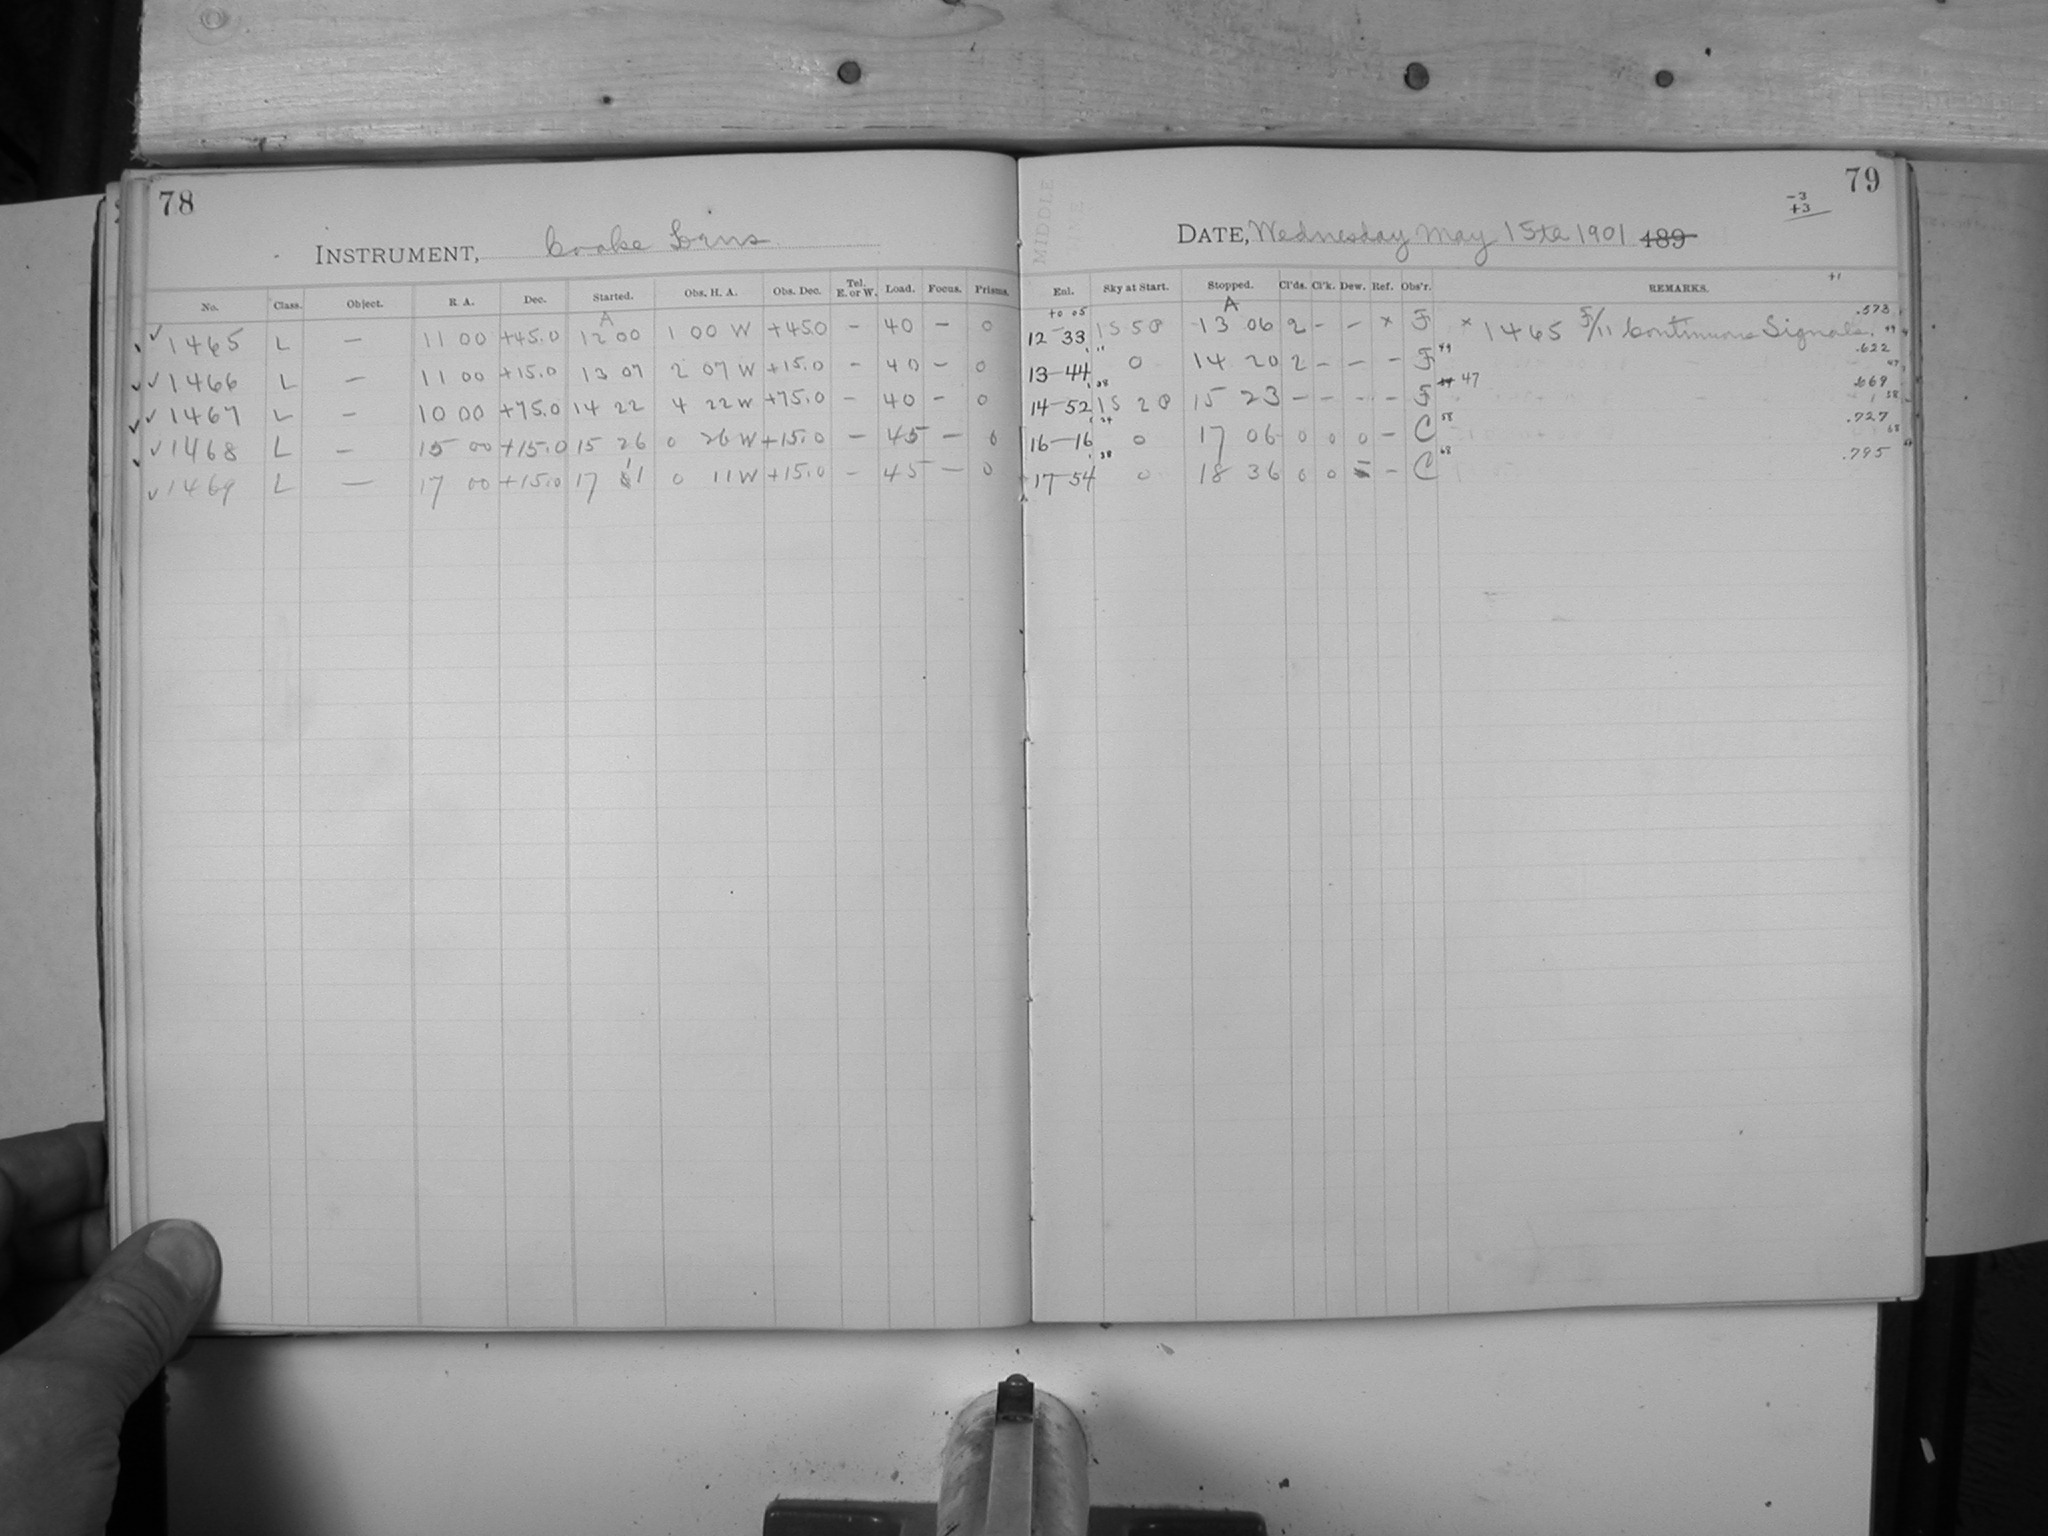 78
INSTRUMENT, Cooke Lens
No. Class. Object. R A. Dec. Started. Obs. H. A. Obs. Dec. Tel. E. or W. Load. Focus. Prisms.
A
✓ 1465 L — 11 00 +45.0 12 00 1 00 W +450 — 40 — 0
✓ ✓ 1466 L — 11 00 +15.0 13 07 2 07 W +15.0 — 40 — 0
✓ ✓ 1467 L — 10 00 +75.0 14 22 4 22 W +75.0 — 40 — 0
✓ ✓ 1468 L — 15 00 +15.0 15 26 0 26 W +15.0 — 45 — 0
✓ 1469 L — 17 00 +15.0 17 11 0 11 W +15.0 — 45 — 0
MIDDLE
79
-3
+3
DATE, Wednesday May 15th 1901 489
+1
Enl. Sky at Start. Stopped. Cl'ds. Cl'k. Dew. Ref. Obs'r. REMARKS.
+0 05 A .573
12-33 1S 5P 13 06 2 — — x F x 1465 F/11 Continuous Signals. 49
13-44 0 14 20 2 — — — F 49 .622
14-52 1S 2P 15 23 — — — — F 47 .669
16-16 0 17 06 0 0 0 — C 58 .727
17-54 0 18 36 0 0 — C 68 .795